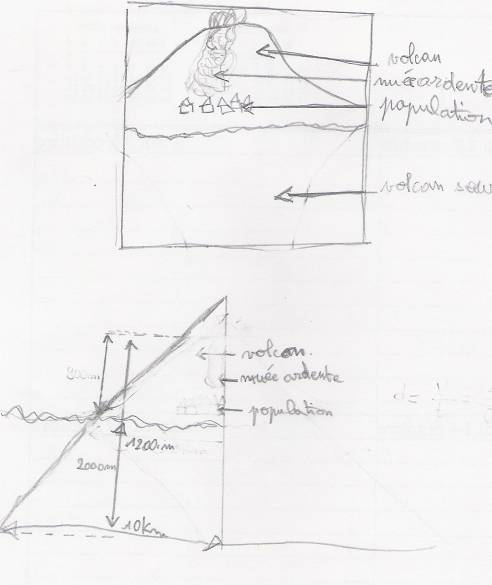 volcan
nuéeardente
population
volcan sou
volcan.
nuée ardente
population
1200m
2000m
10km